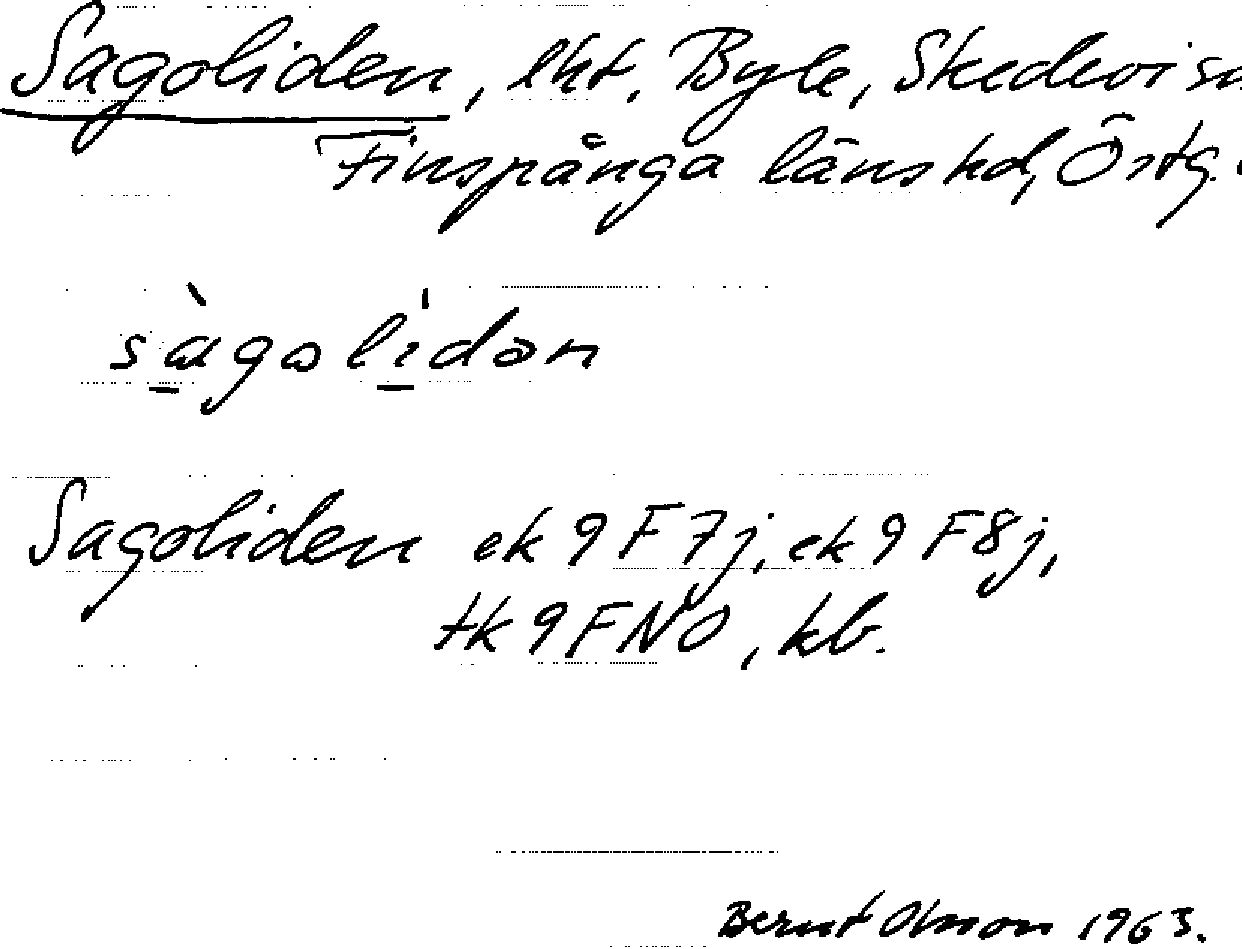 Sagoliden, lht, Byle, Skedevi sn
Finspånga länshd, Östg.
sàgolídən
Sagoliden ek 9F7j, ek 9F8j,
tk 9FNO, kb.
Bernt Olsson 1963.